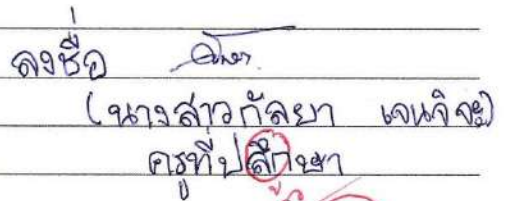 ลงชื่อ
(นางสาวกัลยา เจนจิจะ)
ครูที่ปสึกษา